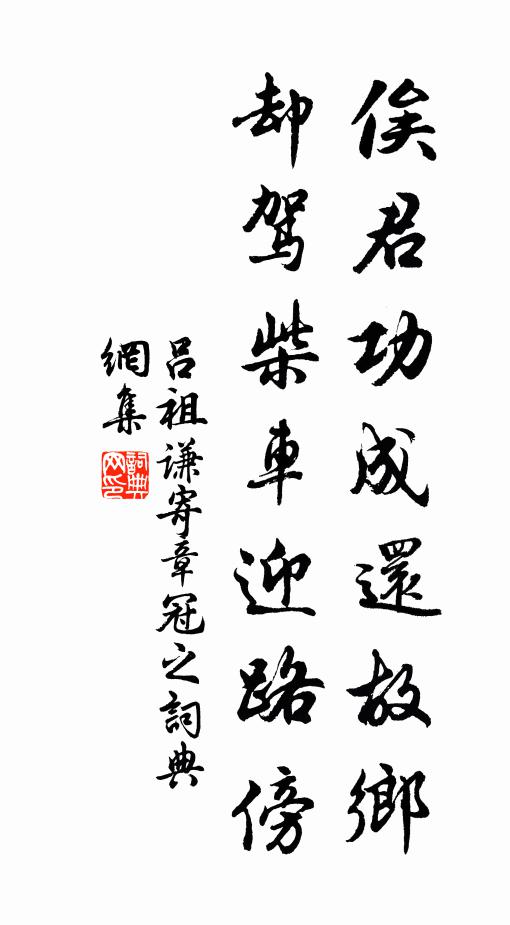 俟君功成還故鄉
却駕柴車迎路傍
呂祖謙寄章冠之詞典
網集
詞典网印